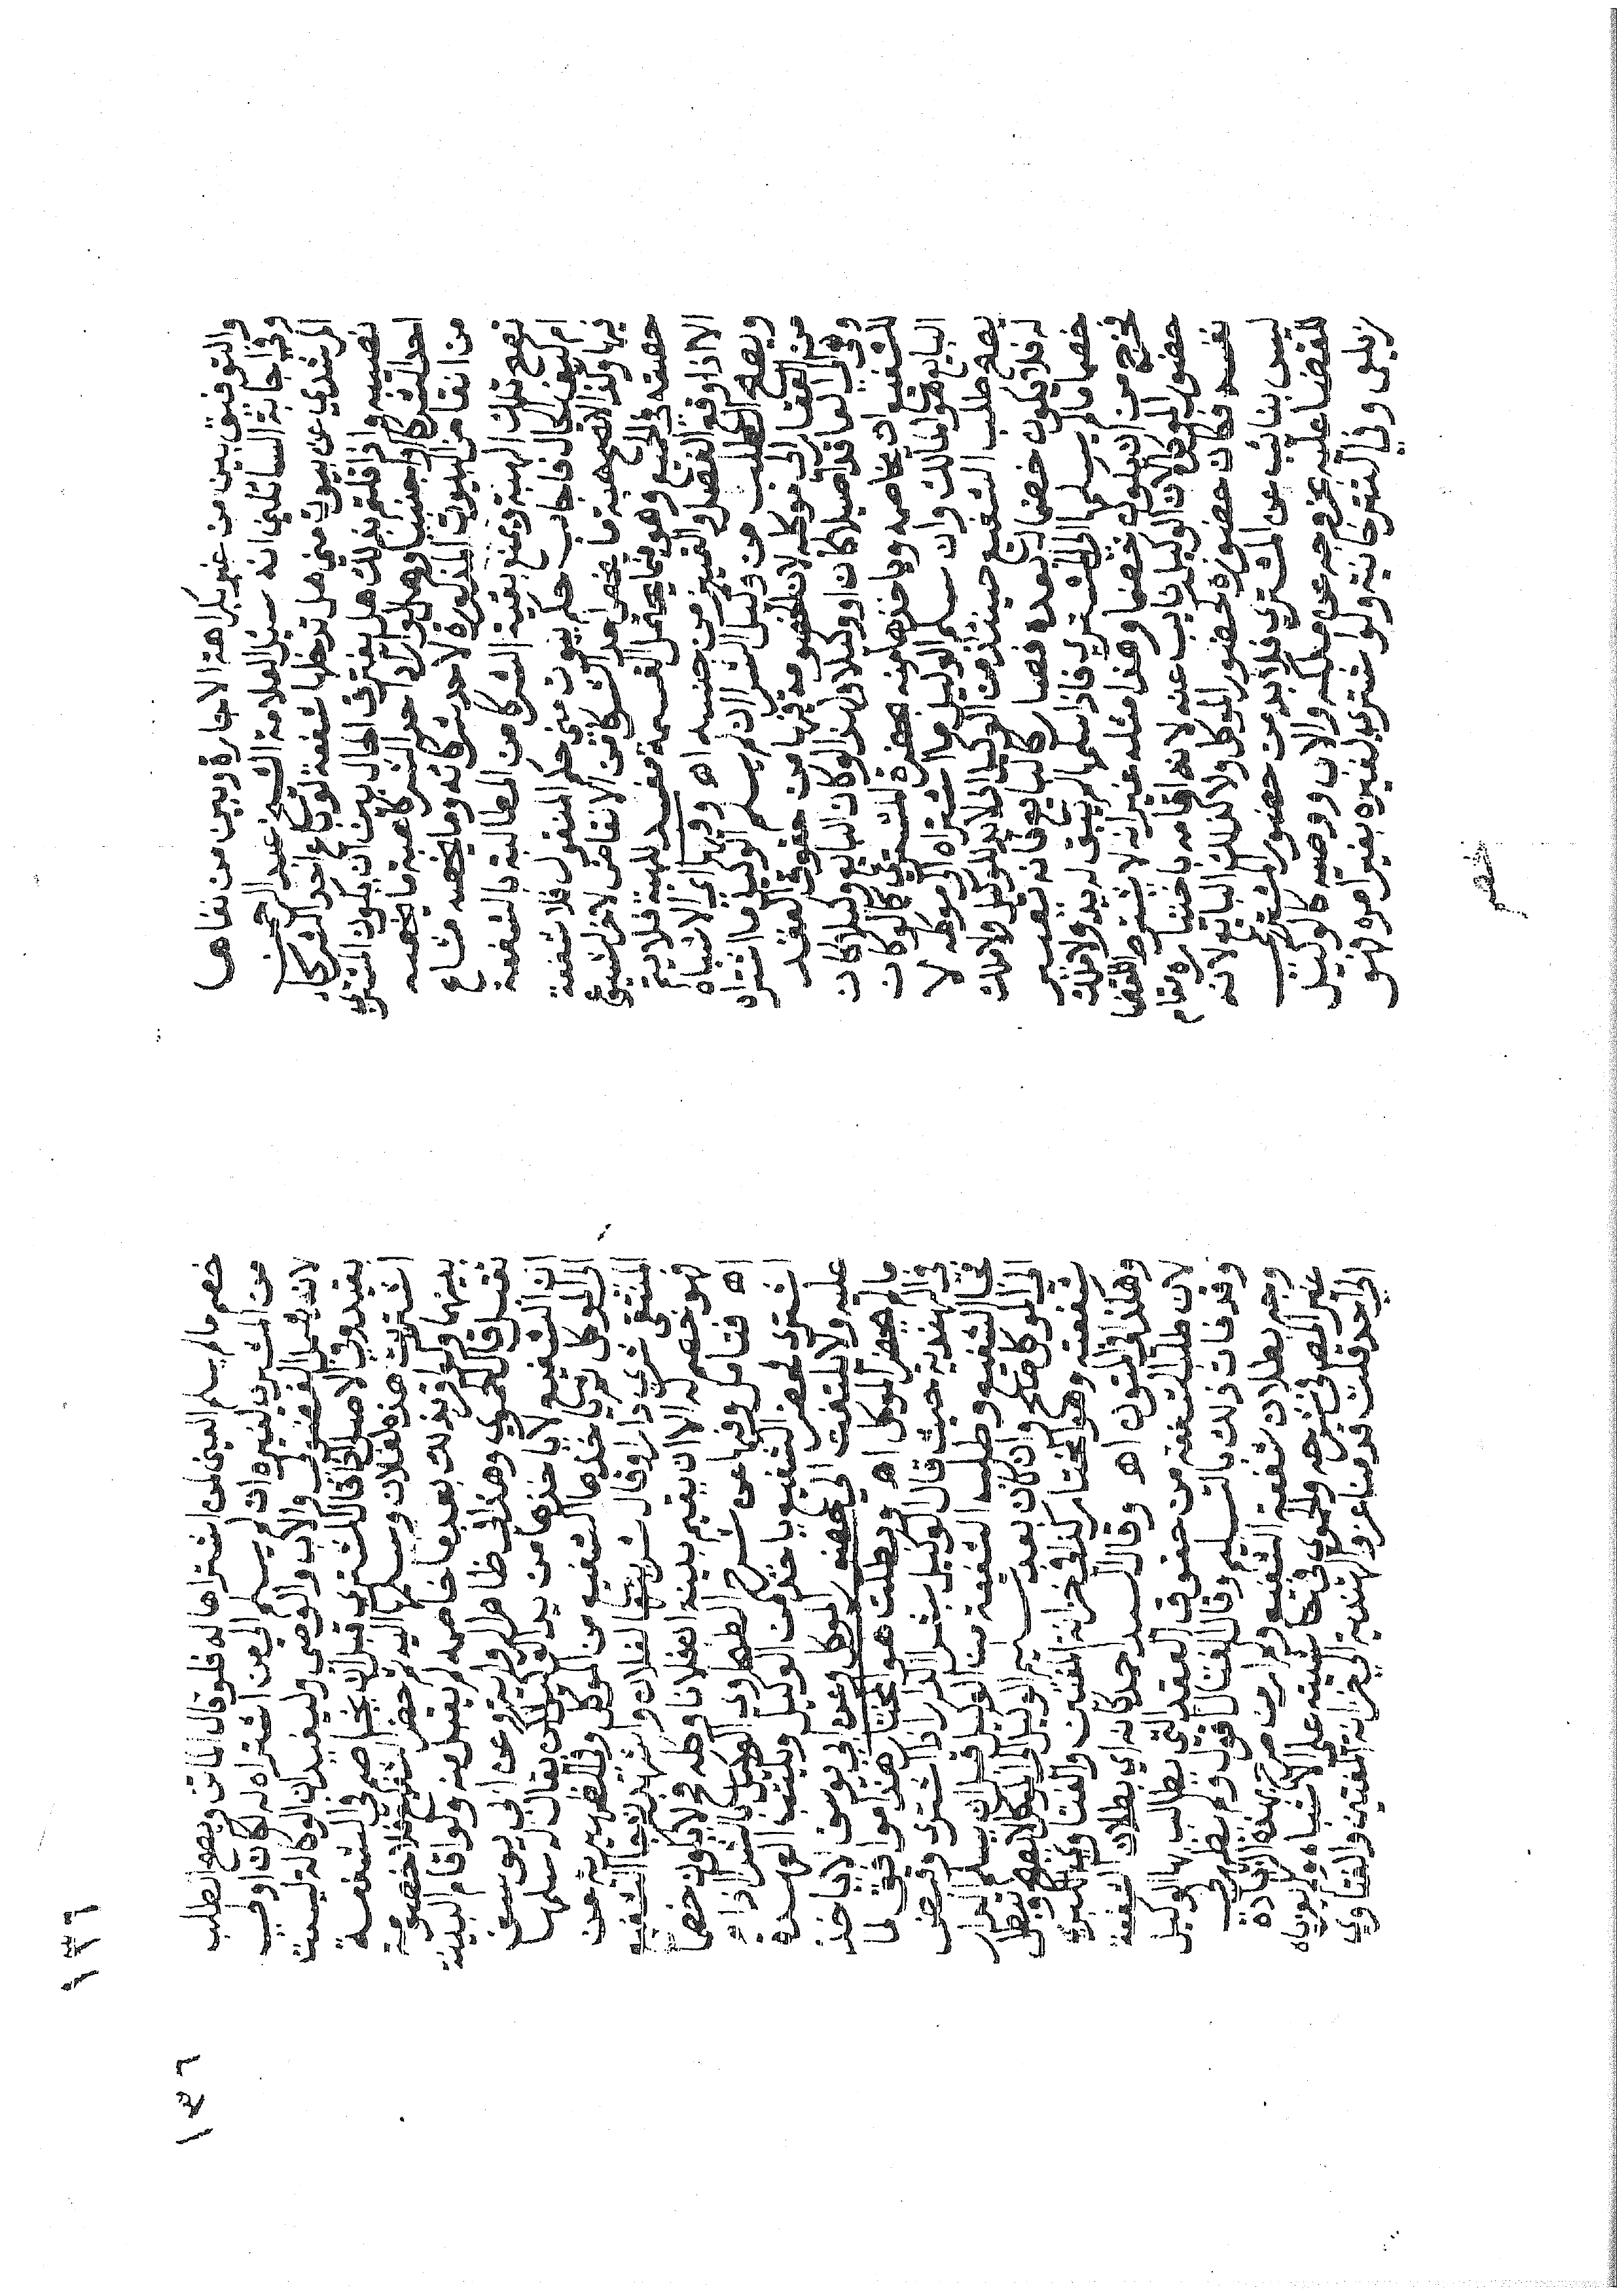 والتوفيق بين من غير بكراهة الاجارة وبين من نفاها
وفي اجابة السائلين انه سئل العلامة الشيخ عبد الرحمن
المرشدي عن بيوت مني هل تدخلها شفعة لو باع احد الشركاء
نصيبه واذا قلتم بذلك هل يفترق الحال بين ان يكون المشتري
احد الشركا او اجنبيا وهل لو اراد احد الشركا هبة ما يخصه
من انقاض البيوت المذكورة لاحد شركائه وما يخصه مشاع
تصح تلك الهبة ويمنع بقية الشركا من المطالبة بالشفعة
ام كيف الحال فاجاب حكم بيوت مني حكم المنقول فلا شفعة
فيها ولذا لا تصح هبة ما يخص احد الشركا من الانقاض لاخر لشيوع
حصته في الجميع وهو فيما يحتمل القسمة مفسد للهبة فلا يتم
الا اذا وقع الفصل والتمييز من جنسه اه وفيها اي الاشباه
ويصح الطلب من وكيل الشرا ان لم يسلم الوكيل ما اشتراه
من العقار الى موكله لان الخصومة فيها من حقوق العقد
وهي الى العاقد اصيلا كان او وكيلا ولهذا لو كان البايع وكيلا كان
للشفيع ان يخاصمه وياخذها منه بحضرة المشتري كما لو كان
البايع هو المالك وان سلم الوكيل ما اشتراه الى موكله لا
يصح طلب الشفيع حينئذ من الوكيل اذ لا يد للوكيل ولا ملك
له فلا يكون خصما بعده فصار كالبايع فانه يصير
خصما ما لم يسلمها الى المشتري فاذا سلمها لم يبق له يد ولا ملك
فخرج من ان يكون خصما وهذا مثله غير انه لا يشترط للقضا
حضور الموكل لان الوكيل نايب عنه لانه اقامه باختياره مقام
نفسه فكان حضوره كحضور الموكل ولا كذلك البايع لانه
ليس بنائب عن المشتري فلا بد من حضور المشتري
للقضا عليه بخروجه عن ملكه والاب ووصيه كالوكيل
زيلعي وفي التترخانية ولو اشترى لغيره بغير امره فهو
خصم ما لم يسلم العين لمن اشتراها له فلو قال الماتن ويصح الطلب
من المشتري لغيره ان لم يسلم الى من اشتراه له لكان اولى
لانه يشمل الفضولي والاب والوصي وليفيد ان الوكالة ليست
بقيد وفي الاصل اذا قال المشتري قبل ان يخاصم في الشفعة
اشتريت هذه لفلان وسلمها اليه ثم حضر الشفيع فلا خصومة
بينهما ولو اقر بذلك بعد ما خاصمه لم يقبل منه ولو اقام البينة
تقبل قال الحموي وهذا في ظاهر الرواية وعن ابي يوسف
ان الشفيع لا ياخذها من يد الوكيل لكن يقال له سلمها
الى الموكل ثم ياخذها الشفيع من الموكل وفي الظهيرية عن
المنتقى شرى دارا وقال شريتها لفلان واشهد ثم جا الشفيع
فهو خصم له الا ان يقيم بينة ان فلانا وكله فلا يكون خصما
اه فتامل وفيها عن شرح الطحاوي الوكيل بالشرا اذا
اشترى فحضر الشفيع ياخذ من الوكيل ويكتب العهدة
عليه ولا يلتفت الى حضور الموكل وعن ابي يوسف لا ياخذ
ما لم يحضر الموكل اه وبطلت هو المختار هذا موافق لما
في الهندية حيث قال الوكيل بشرا الدار اذا اشترى وقبض
فجا الشفيع وطلب الشفعة من الوكيل قبل ان يسلم الدار
الى الموكل صح وان كان بعد تسليم الوكيل الى الموكل لا يصح وتبطل
شفعته وهو المختار كذا في خزانة المفتين والفتاوى الكبرى
وهكذا في المتون اه وقال السيد احمد كانه اي بطلان الشفعة
لان طلب الشفعة من حقوق العقد التي يطالب بها الوكيل
وقد فات ذلك بالتسليم وقال الفتال قول ولم يظهر لي
وجه بطلان شفعة الشفيع ولم ار من صرح بهذه الزيادة
غير المص في شرحه والحموي في حاشيته على الاشباه ولم يعزياه
الى احد قلت قدمنا عزو الهندية الى خزانة المفتين والفتاوى
١٣٦
١٣٦